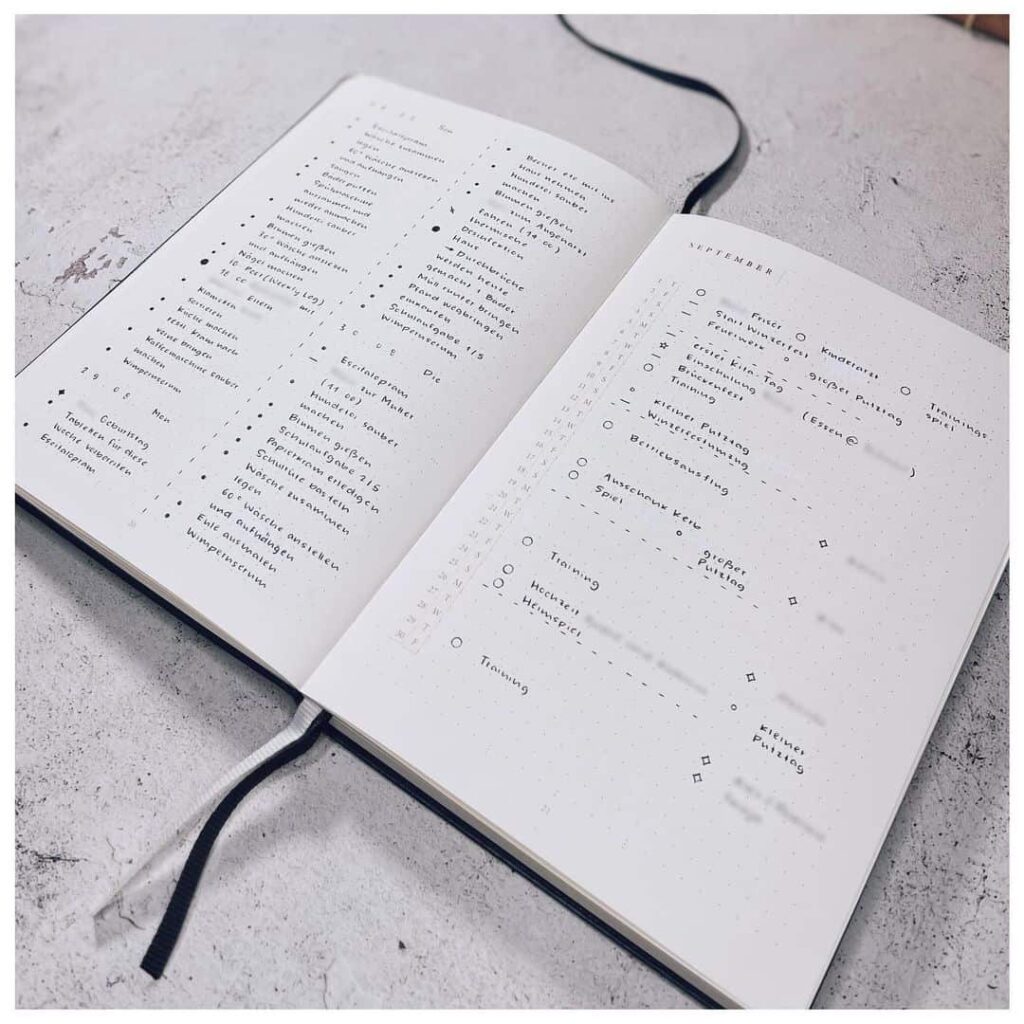 28. 08 Son
Escitalopram
Wäsche zusammen
legen
60° Wäsche anstellen
und aufhängen
saugen
Bäder putzen
Spülmaschine
ausräumen und
wieder einräumen
Hundeklo sauber
machen
Blumen gießen
30° Wäsche anstellen
und aufhängen
Nägel machen
IG Post (Weekly Log)
16:00
Essen mit
Klamotten
sortieren
Küche machen
restl. Kram nach
vorne bringen
Kaffeemaschine sauber
machen
Wimpernserum
29. 08 Mon
Geburtstag
Tabletten für diese
Woche vorbereiten
Escitalopram
Becher etc mit ins
Haus nehmen
Hundeklo sauber
machen
Blumen gießen
zum Angelarzt
fahren (14:00)
thermische
Desinfektion
Haus
→ Durchbrüche
werden heute
gemacht + Bäder
Müll runter bringen
Pfand wegbringen
einkaufen
Schulaufgabe 1/5
Wimpernserum
30. 08 Die
Escitalopram
zur Müller
(11:00)
Hundeklo sauber
machen
Blumen gießen
Schulaufgabe 2/5
Papierkram erledigen
Schultüte basteln
Wäsche zusammen
legen
60° Wäsche anstellen
und aufhängen
Eule ausmalen
Wimpernserum
SEPTEMBER
Friser
Start Winzerfest
Kinderarzt
Feuerwerk
großer Putztag
Trainings.
spiel
erster Kita-Tag
Einschulung
(Essen @
)
Brückenfest
Training
kleiner Putztag
Winzerfestumzug
Betriebsausflug
Ausschank Keiv
Spiel
großer
Putztag
Training
Hochzeit
Heimspiel
kleiner
Putztag
Training